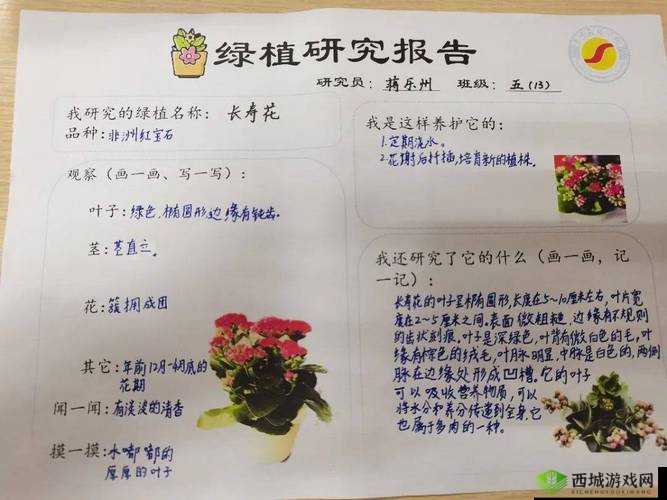 绿植研究报告
研究员：蒋乐州 班级：五（13）
我研究的绿植名称：长寿花
品种：非洲红宝石
观察（画一画、写一写）：
叶子：绿色，椭圆形，边缘有钝齿。
茎：茎直立。
花：簇拥成团
其它：年前12月-4月底的
花期
闻一闻：有淡淡的清香
摸一摸：水嘟嘟的
厚厚的叶子
我是这样养护它的：
1.定期浇水。
2.花期后扦插，培育新的植株。
我还研究了它的什么（画一画，记
一记）：
长寿花的叶子呈椭圆形，长度在5~10厘米左右，叶片宽
度在2~5厘米之间。表面微粗糙，边缘有不规则
的齿状刻痕。叶子是深绿色，叶背有微白色的毛，叶
缘有棕色的绒毛，叶脉明显，中脉是白色的，两侧
脉在边缘处形成凹槽。它的叶子
可以吸收营养物质，可以
将水分和养分传递到全身。它
也属于多肉的一种。
西城游戏网
XICHENG YOUXIWANG